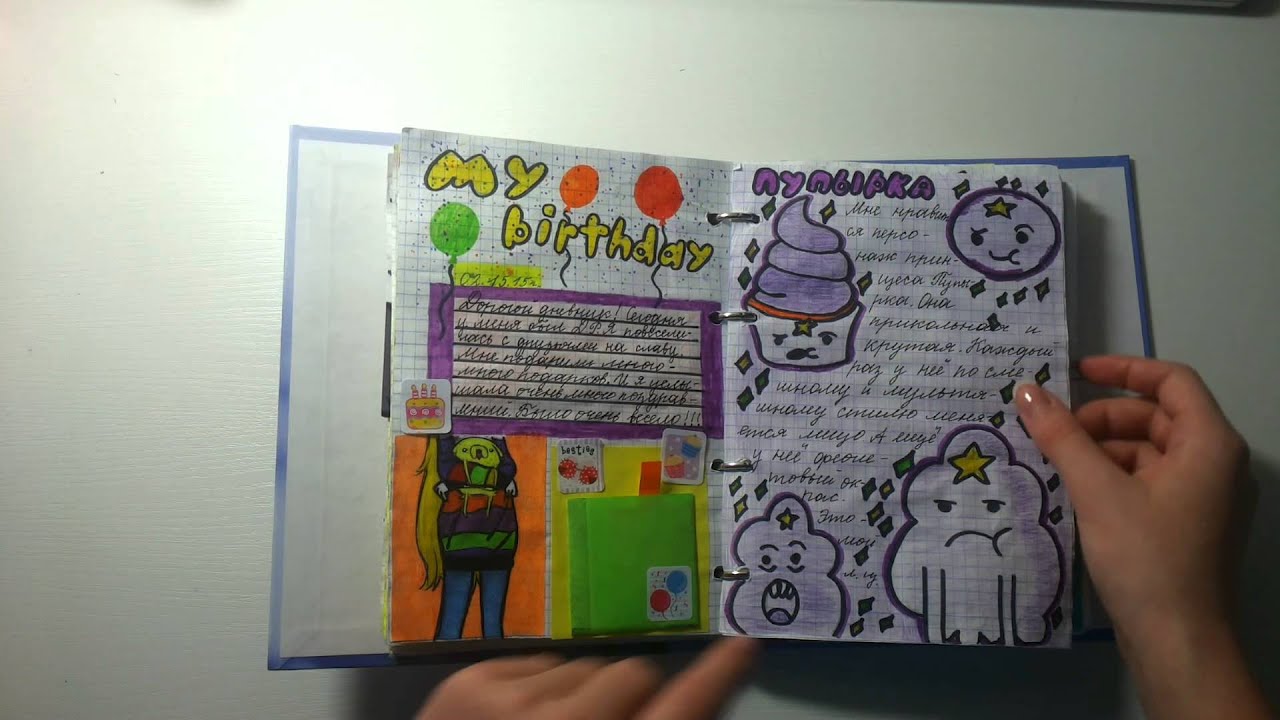 my
birthday
Дорогой дневник! Сегодня
у меня был Д.Р. Я повесели-
лась с на славу.
Мне подарили много-
много подарков. И я услы-
шала очень много поздрав-
Было очень весело!!!
ПУПЫРКА
Мне нравит
ся персо-
наж прин-
цеса Пупы
рка. Она
прикольная и
крутая. Каждый
раз у неё по сме-
шному и мультя-
шному стилю меня-
ется лицо А ещё
у неё фиоле-
товый ок-
рас.
Это-
мой